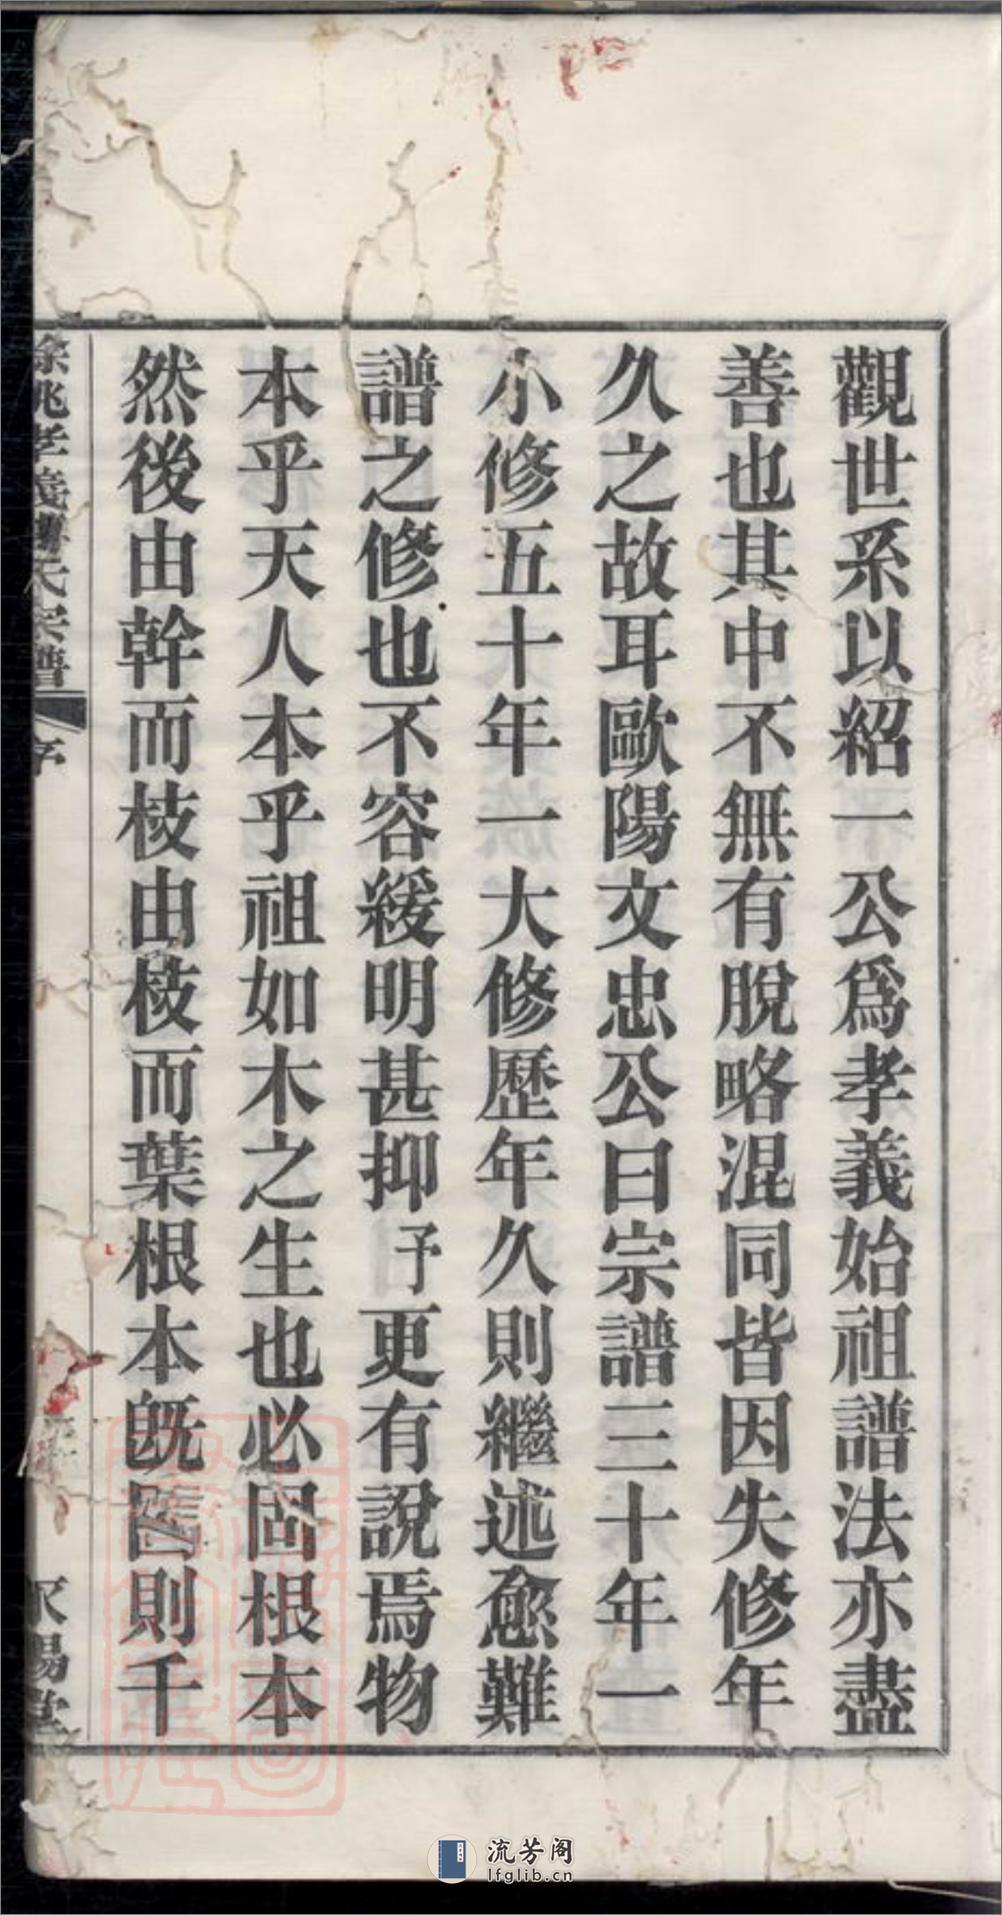 觀世系以紹一公爲孝義始祖譜法亦盡
善也其中不無有脫略混同皆因失修年
久之故耳歐陽文忠公曰宗譜三十年一
小修五十年一大修歷年久則繼述愈難
譜之修也不容緩明甚抑予更有說焉物
本乎天人本乎祖如木之生也必固根本
然後由幹而枝由枝而葉根本旣固則千
氏宗譜
序
流芳阁
lfglib.cn